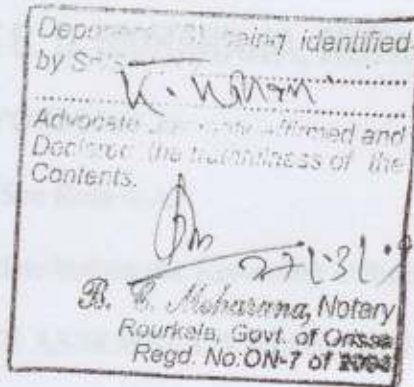 Deponent (S) being identified
by Sri/S
Advocate solemnly affirmed and
Declared the truthfulness of the
Contents.
27/3/
B. K. Maharana, Notary
Rourkela, Govt. of Orissa
Regd. No: ON-7 of